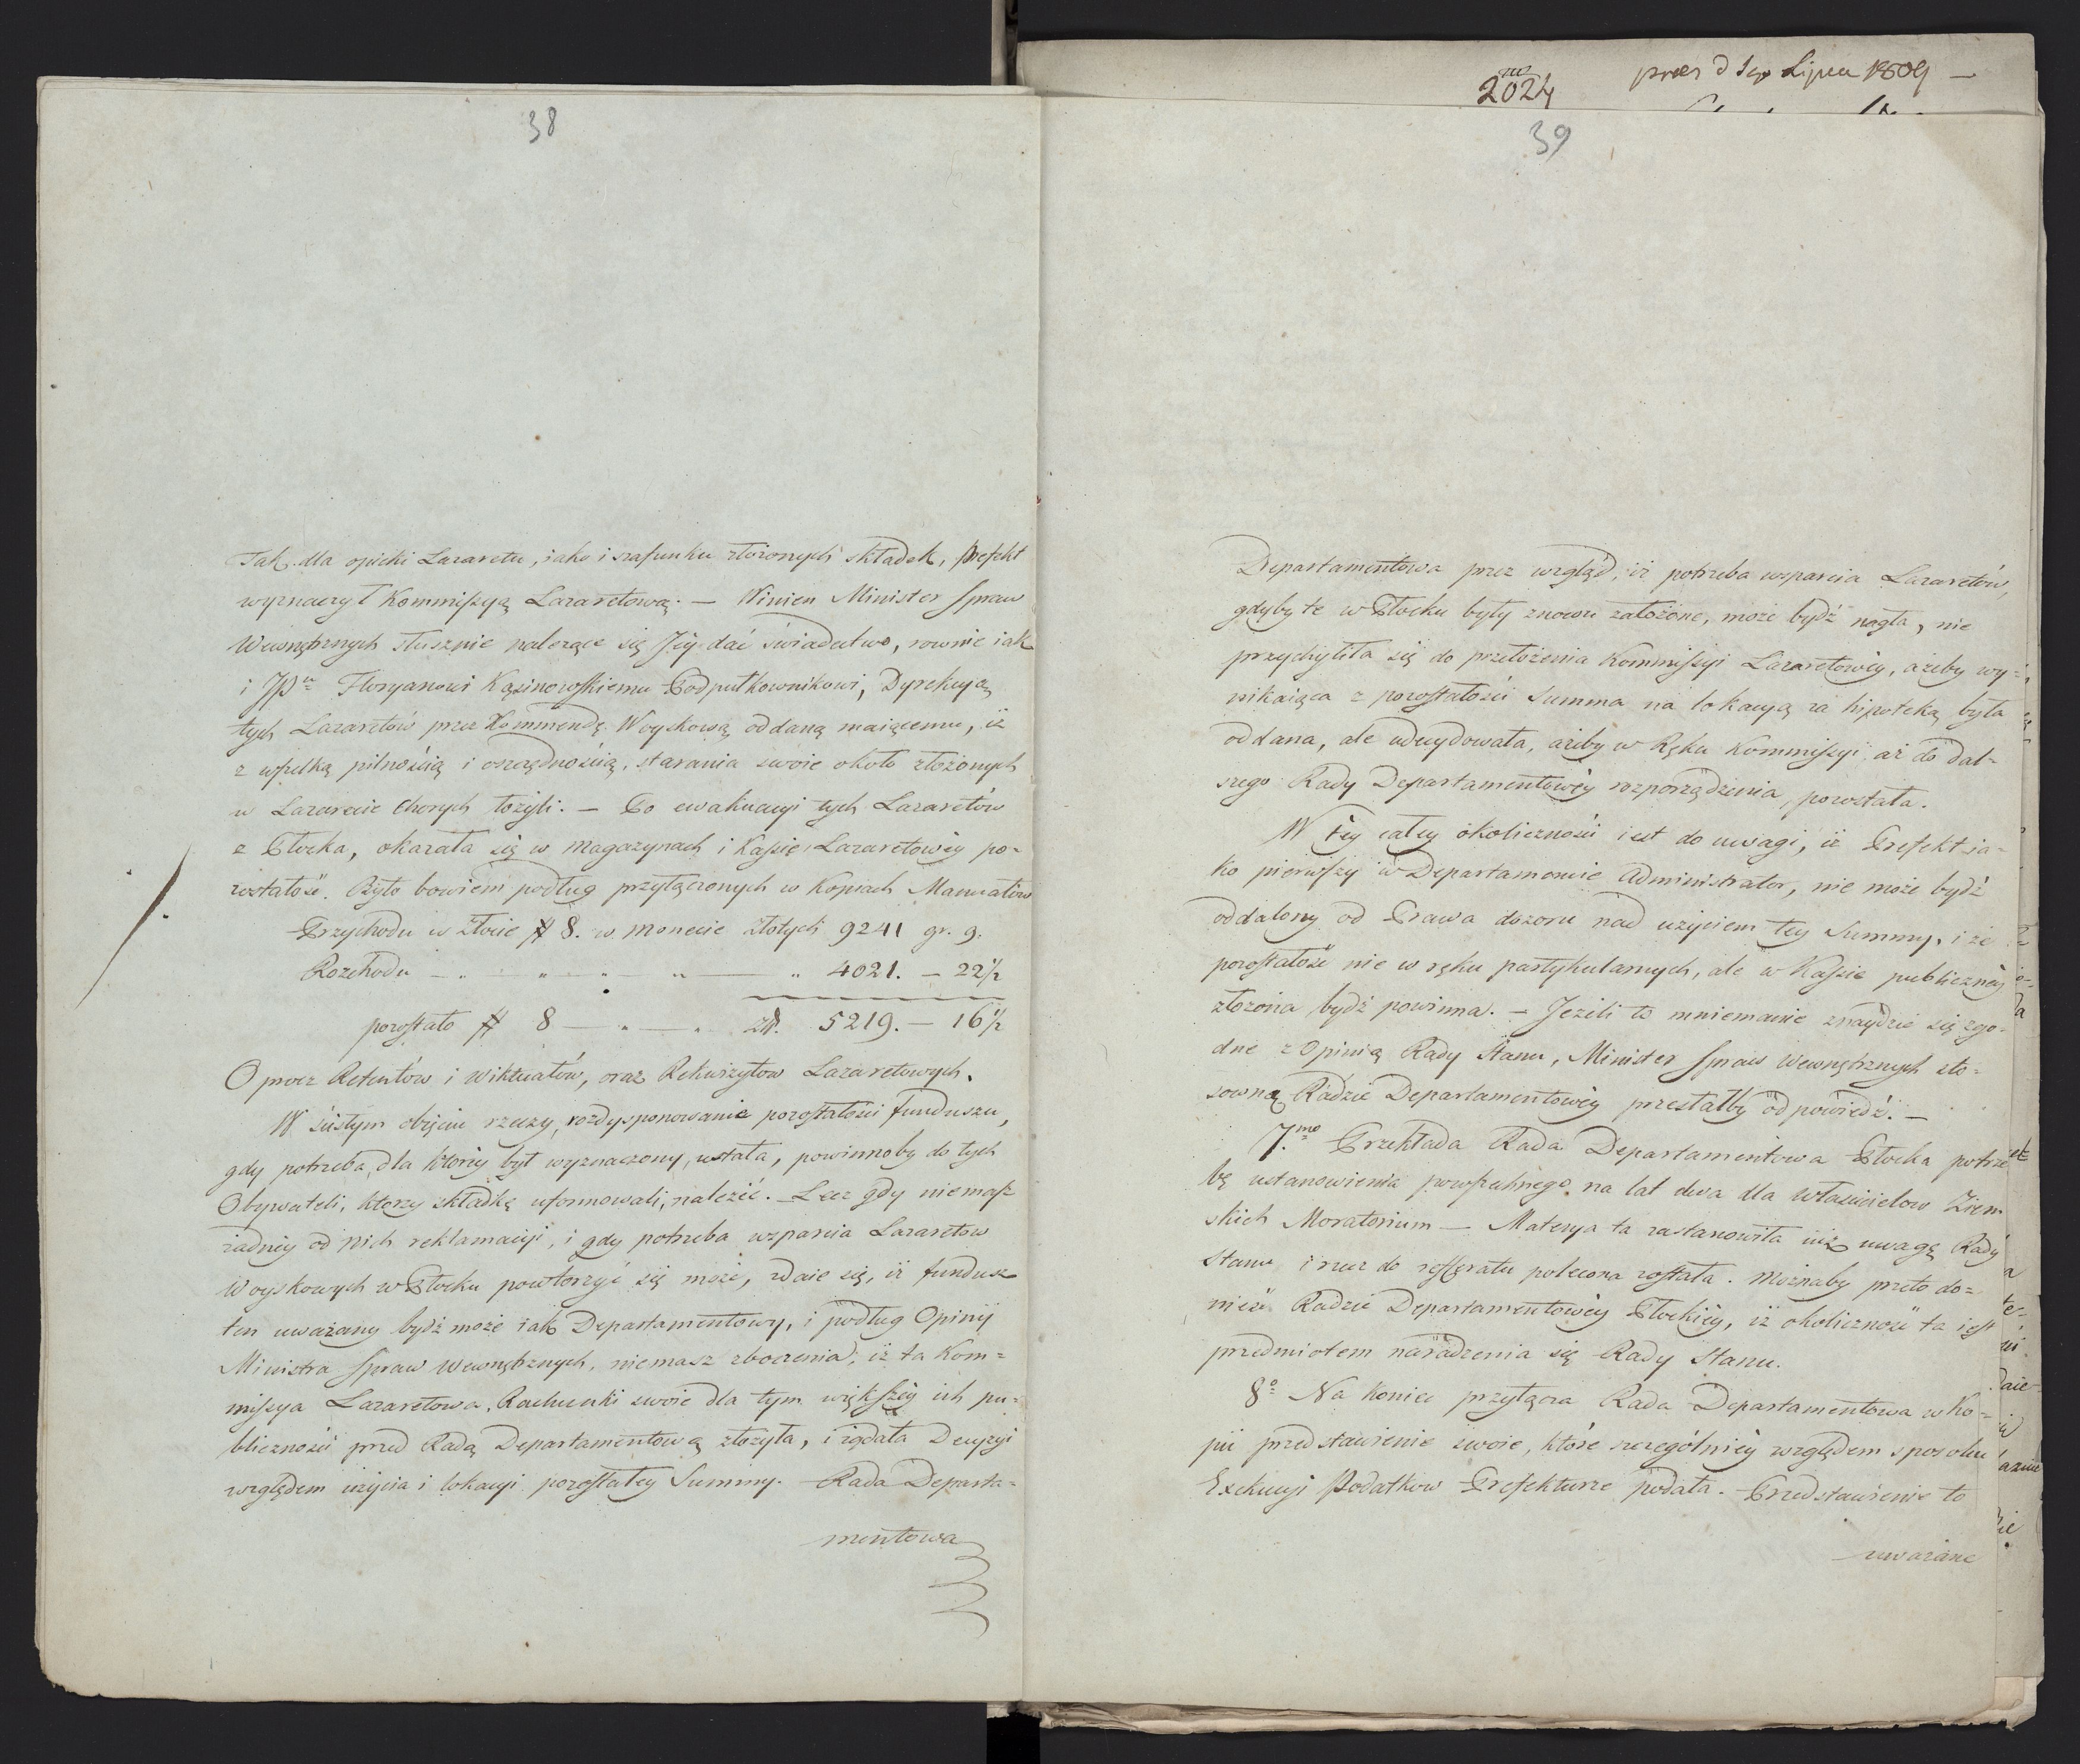 38
Tak dla opieki Lazaretu, iako i szafunku złożonych składek, Prefekt
wyznaczył Kommissyą Lazaretową. — Winien Minister Spraw
Wewnętrznych słusznie należące się Jey dać świadectwo, rownie iak
i JPu Floryanowi Podpułkownikowi, Dyrekcyą
tych Lazaretów przez Kommendę Woyskową oddaną maiącemu, iż
z wszelką pilnością i oszczędnością, starania swoie około złożonych
w Lazarecie chorych łożyli. — Po ewakuacyi tych Lazaretów
z Płocka, okazała się w magazynach i Kassie Lazaretowéy po-
zostałość. Było bowiem podług przyłączonych w Kopiach Manuałów
Przychodu w złocie # 8. w monecie złotych 9241 gr. 9.
Rozchodu — „ — „ — „ — „ 4021. — 22½
pozostało # 8 — „ — „ zł. 5219. — 16½
Oprocz Retentów i wiktuałów, oraz Rekwizytow Lazaretowych.
W ścisłym obięciu rzeczy, rozdysponowanie pozostałości funduszu,
gdy potrzeba, dla którey był wyznaczony, ustała, powinnoby do tych
Obywateli, ktorzy składkę uformowali, należeć. — Lecz gdy niemasz
żadney od nich reklamacyi, i gdy potrzeba wsparcia Lazaretow
Woyskowych w Płocku powtorzyć się może, zdaie się, iż fundusz
ten uważany bydź może iak Departamentowy, i podług Opinij
Ministra Spraw Wewnętrznych, niemasz zboczenia, iż ta Kom=
missya Lazaretowa, Rachunki swoie dla tym większéy ich pu=
bliczności przed Radą Departamentową złożyła, i żądała Decyzyi
względem użycia i lokacyi pozostałey Summy. — Rada Departa=
mentowa
2024 pres d Lipca 1809 —
39
Departamentowa przez wzgląd, iż potrzeba wsparcia Lazaretów,
gdyby te w Płocku były znowu założone, może bydź nagła, nie
przychyliła się do przełożenia Kommissyi Lazaretowéy, ażeby wy=
nikaiąca z pozostałości Summa na lokacyą za hipoteką była
oddana, ale udecydowała, ażeby w Ręku Kommissyi, aż do dal=
szego Rady Departamentowéy rozporządzenia, pozostała.
W téy całey okoliczności iest do uwagi, iż Prefekt ia=
ko pierwszy w Departamencie Administrator, nie może bydź
oddalony od Prawa dozoru nad użyciem tey Summy, i że
pozostałość nie w ręku partykularnych, ale w Kassie publicznéy
złożona bydź powinna. — Jeżeli to mniemanie znaydzie się zgo=
dne z Opinią Rady Stanu, Minister Spraw Wewnętrznych sto=
sowną Radzie Departamentowéy przesłałby odpowiedź. —
7.mo Przekłada Rada Departamentowa Płocka potrze
bę ustanowienia powszechnego na lat dwa dla Właścicielow Ziem
skich Moratorium — Materya ta zastanowiła iuż uwagę Rady
Stanu i rzecz do refferatu polecona została. Możnaby przeto do=
nieść Radzie Departamentowéy Płockiéy, iż okoliczność ta iest
przedmiotem naradzenia się Rady Stanu.
8o Na koniec przyłącza Rada Departamentowa w Ko=
pii przedstawienie swoie, które szczególniéy względem sposobu
Exekucyi Podatkow Prefekturze podała. Przedstawienie to
uważane